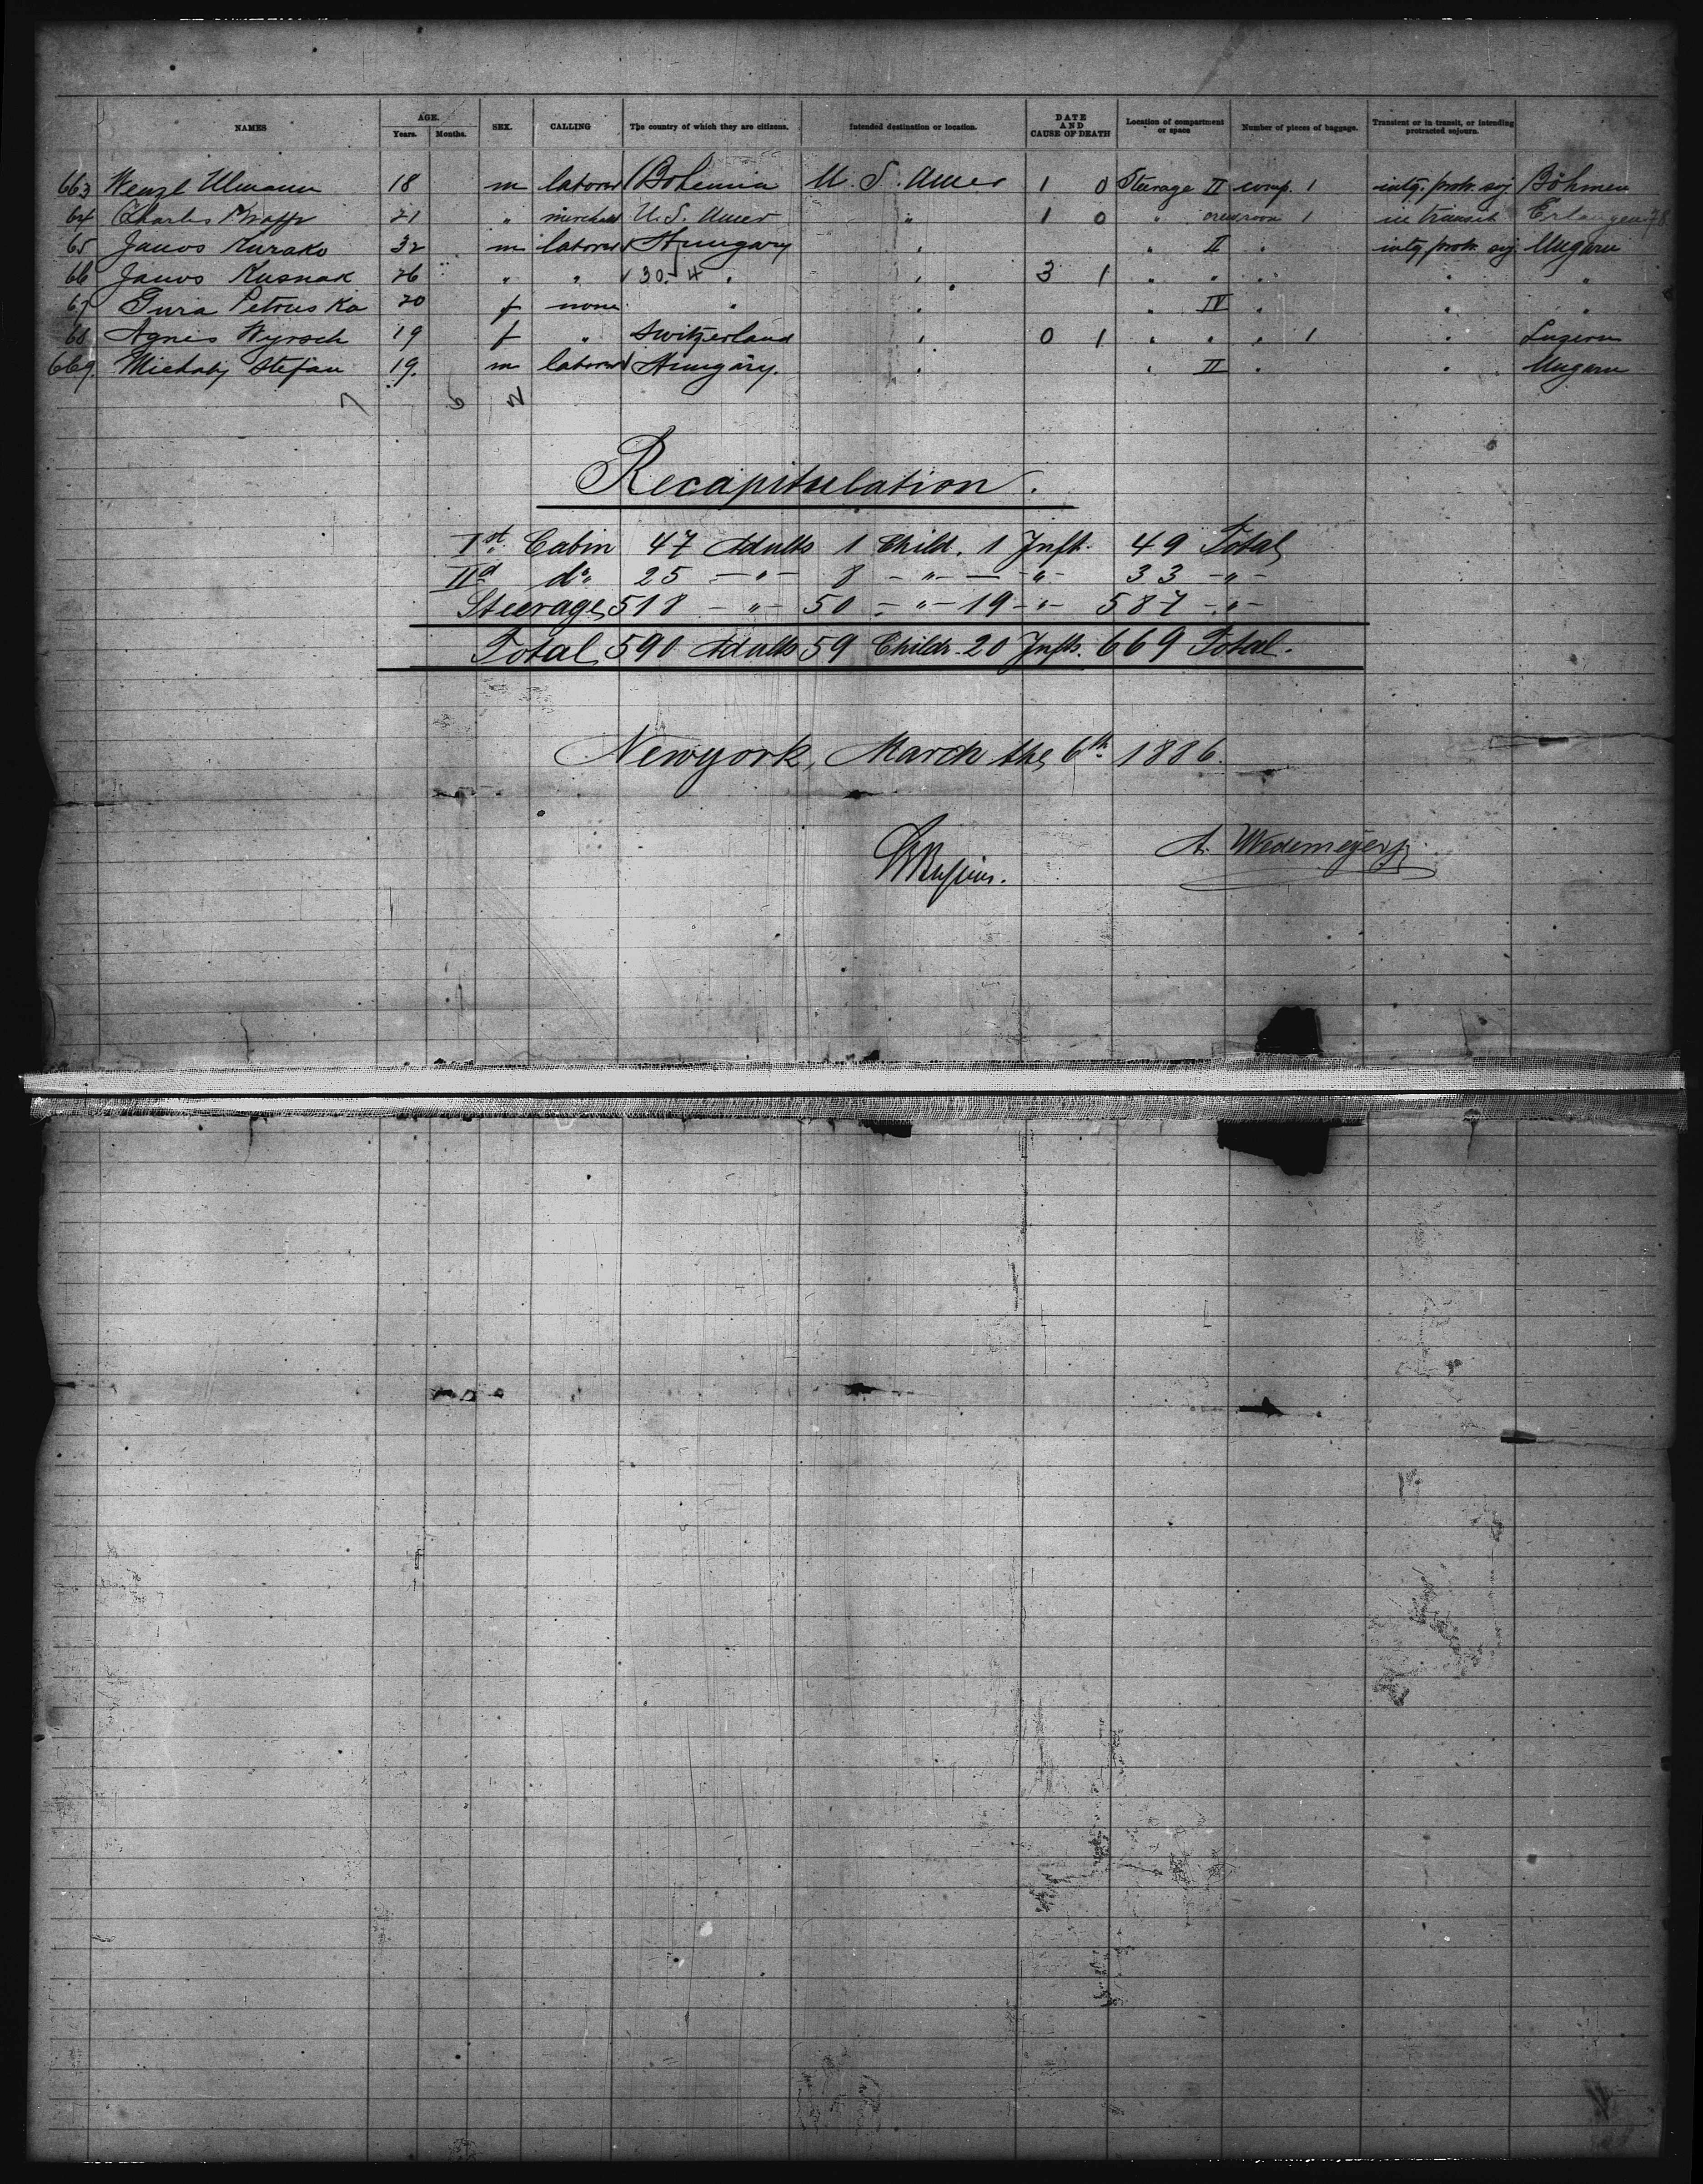 NAMES AGE. Years. Months. SEX. CALLING The country of which they are citizens. Intended destination or location. DATE AND CAUSE OF DEATH Location of compartment or space Number of pieces of baggage. Transient or in transit, or intending protracted sojourn.
663 Wenzl Ulmann 18 m laborer Bohemia U. S. Amer 1 0 Steerage II comp. 1 intg. protr. soj Böhmen
64 Charles 21 " merchant U. S. Amer " 1 0 " 1 in transit Erlangen
65 Janos Kurako 32 m laborer Hungary " " II " intg. protr. soj. Ungarn
66 Janos Kusnak 26 " " 30.-4 " " 3 1 " " " " "
67 Petruska 20 f none " " " IV " " "
68 Agnes Wyrsch 19 f " Switzerland " 0 1 " " " 1 " Luzern
669. Michaly Stefan 19. m laborer Hungary. " " II " " Ungarn
7 5 2
Recapitulation.
Ist. Cabin 47 Adults 1 Child. 1 Inft. 49 Total
IId do. 25 — " — 8 — " — — " — 33 — " —
Steerage 518 — " — 50 — " — 19 — " — 587 — " —
Total 590 Adults 59 Childr. 20 Infts. 669 Total.
Newyork, March the 6th 1886.
A. Wedemeyer